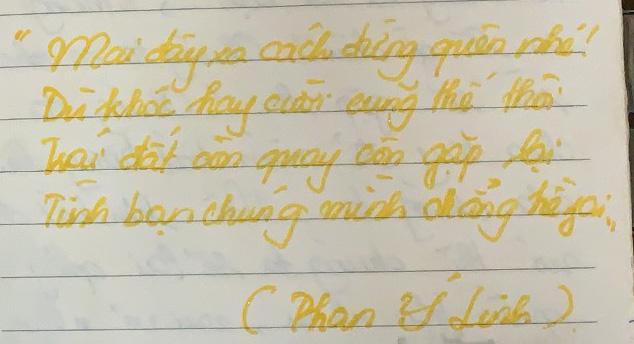 " Mai đây xa cách đừng quên nhé!
Dù khóc hay cười cũng thế thôi
Trái đất còn quay còn gặp lại
Tình bạn chúng mình chẳng hề "
( Phan Ý Linh )